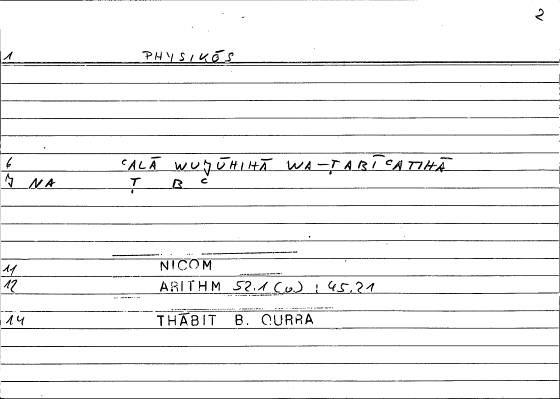 2
1 PHYSIKŌS
6 ᶜALĀ WUJŪHIHĀ WA-ṬABĪᶜATIHĀ
7 NA Ṭ B ᶜ
11 NICOM
12 ARITHM 52.1 (u) : 45.21
14 THĀBIT B. QURRA